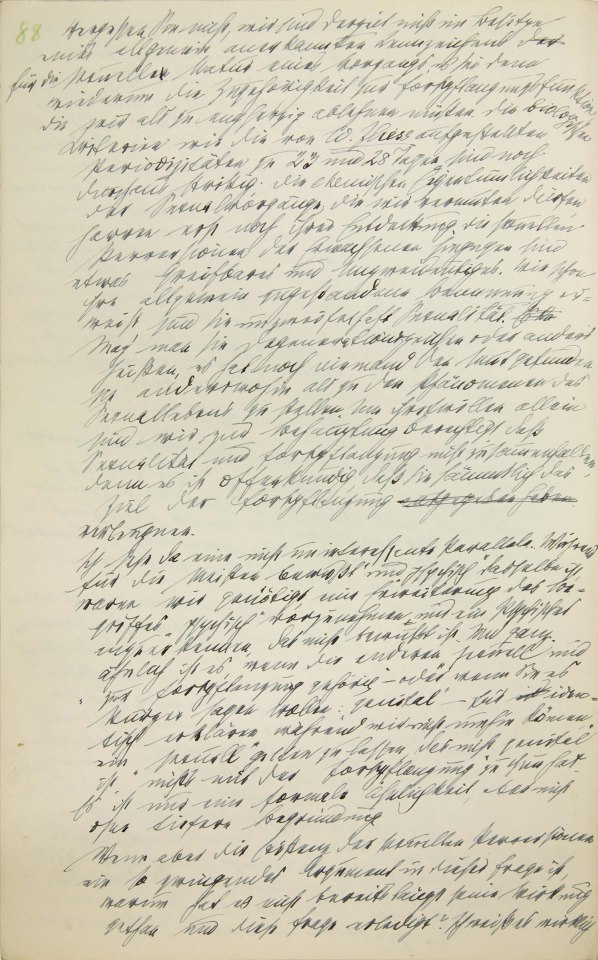 88
Vergessen Sie nicht, wir sind derzeit nicht im Besitze
eines allgemein anerkannten Kennzeichens
für die sexuelle Natur eines Vorgangs, es sei denn
wiederum die Zugehörigkeit zur Fortpflanzungsfunktion
die wir als zu engherzig ablehnen müssen. Die biologischen
Kriterien wie die von W. Fliess aufgestellten
Periodizitäten zu 23 und 28 Tagen sind noch
durchaus strittig. Die chemischen Eigentümlichkeiten
der Sexualvorgänge, die wir vermuten dürfen
harren erst noch ihrer Entdeckung. Die sexuellen
Perversionen der Erwachsenen hingegen sind
etwas Greifbares und Unzweideutiges. Wie schon
ihre allgemein zugestandene Benennung er-
weist sind sie unzweifelhaft Sexualität.
Mag man sie Degenerationszeichen oder anders
heißen, es hat noch niemand den Mut gefunden
sie anderswohin als zu den Phänomenen des
Sexuallebens zu stellen. Um ihretwillen allein
sind wir zur Behauptung berechtigt daß
Sexualität und Fortpflanzung nicht zusammenfallen,
denn es ist offenkundig daß sie sämmtlich das
Ziel der Fortpflanzung
verleugnen.
Ich sehe da eine nicht uninteressante Parallele. Während
für die Meisten „bewußt“ und „psychisch“ dasselbe ist
waren wir genötigt eine Erweiterung des Be-
griffes „psychisch“ vorzunehmen und ein Psychisches
anzuerkennen, das nicht bewußt ist. Und ganz
ähnlich ist es wenn die anderen „sexuell“ und
„zur Fortpflanzung gehörig – oder wenn Sie es
kürzer sagen wollen: genital“ – für iden-
tisch erklären während wir nicht umhin können
ein „sexuell“ gelten zu lassen, das nicht „genital“
ist, nichts mit der Fortpflanzung zu thun hat.
Es ist nur eine formale Ähnlichkeit, aber nicht
ohne tiefere Begründung.
Wenn aber die Existenz der sexuellen Perversionen
ein so zwingendes Argument in dieser Frage ist,
warum hat es nicht bereits längst seine Wirkung
gethan und diese Frage erledigt? Ich weiß es wirklich